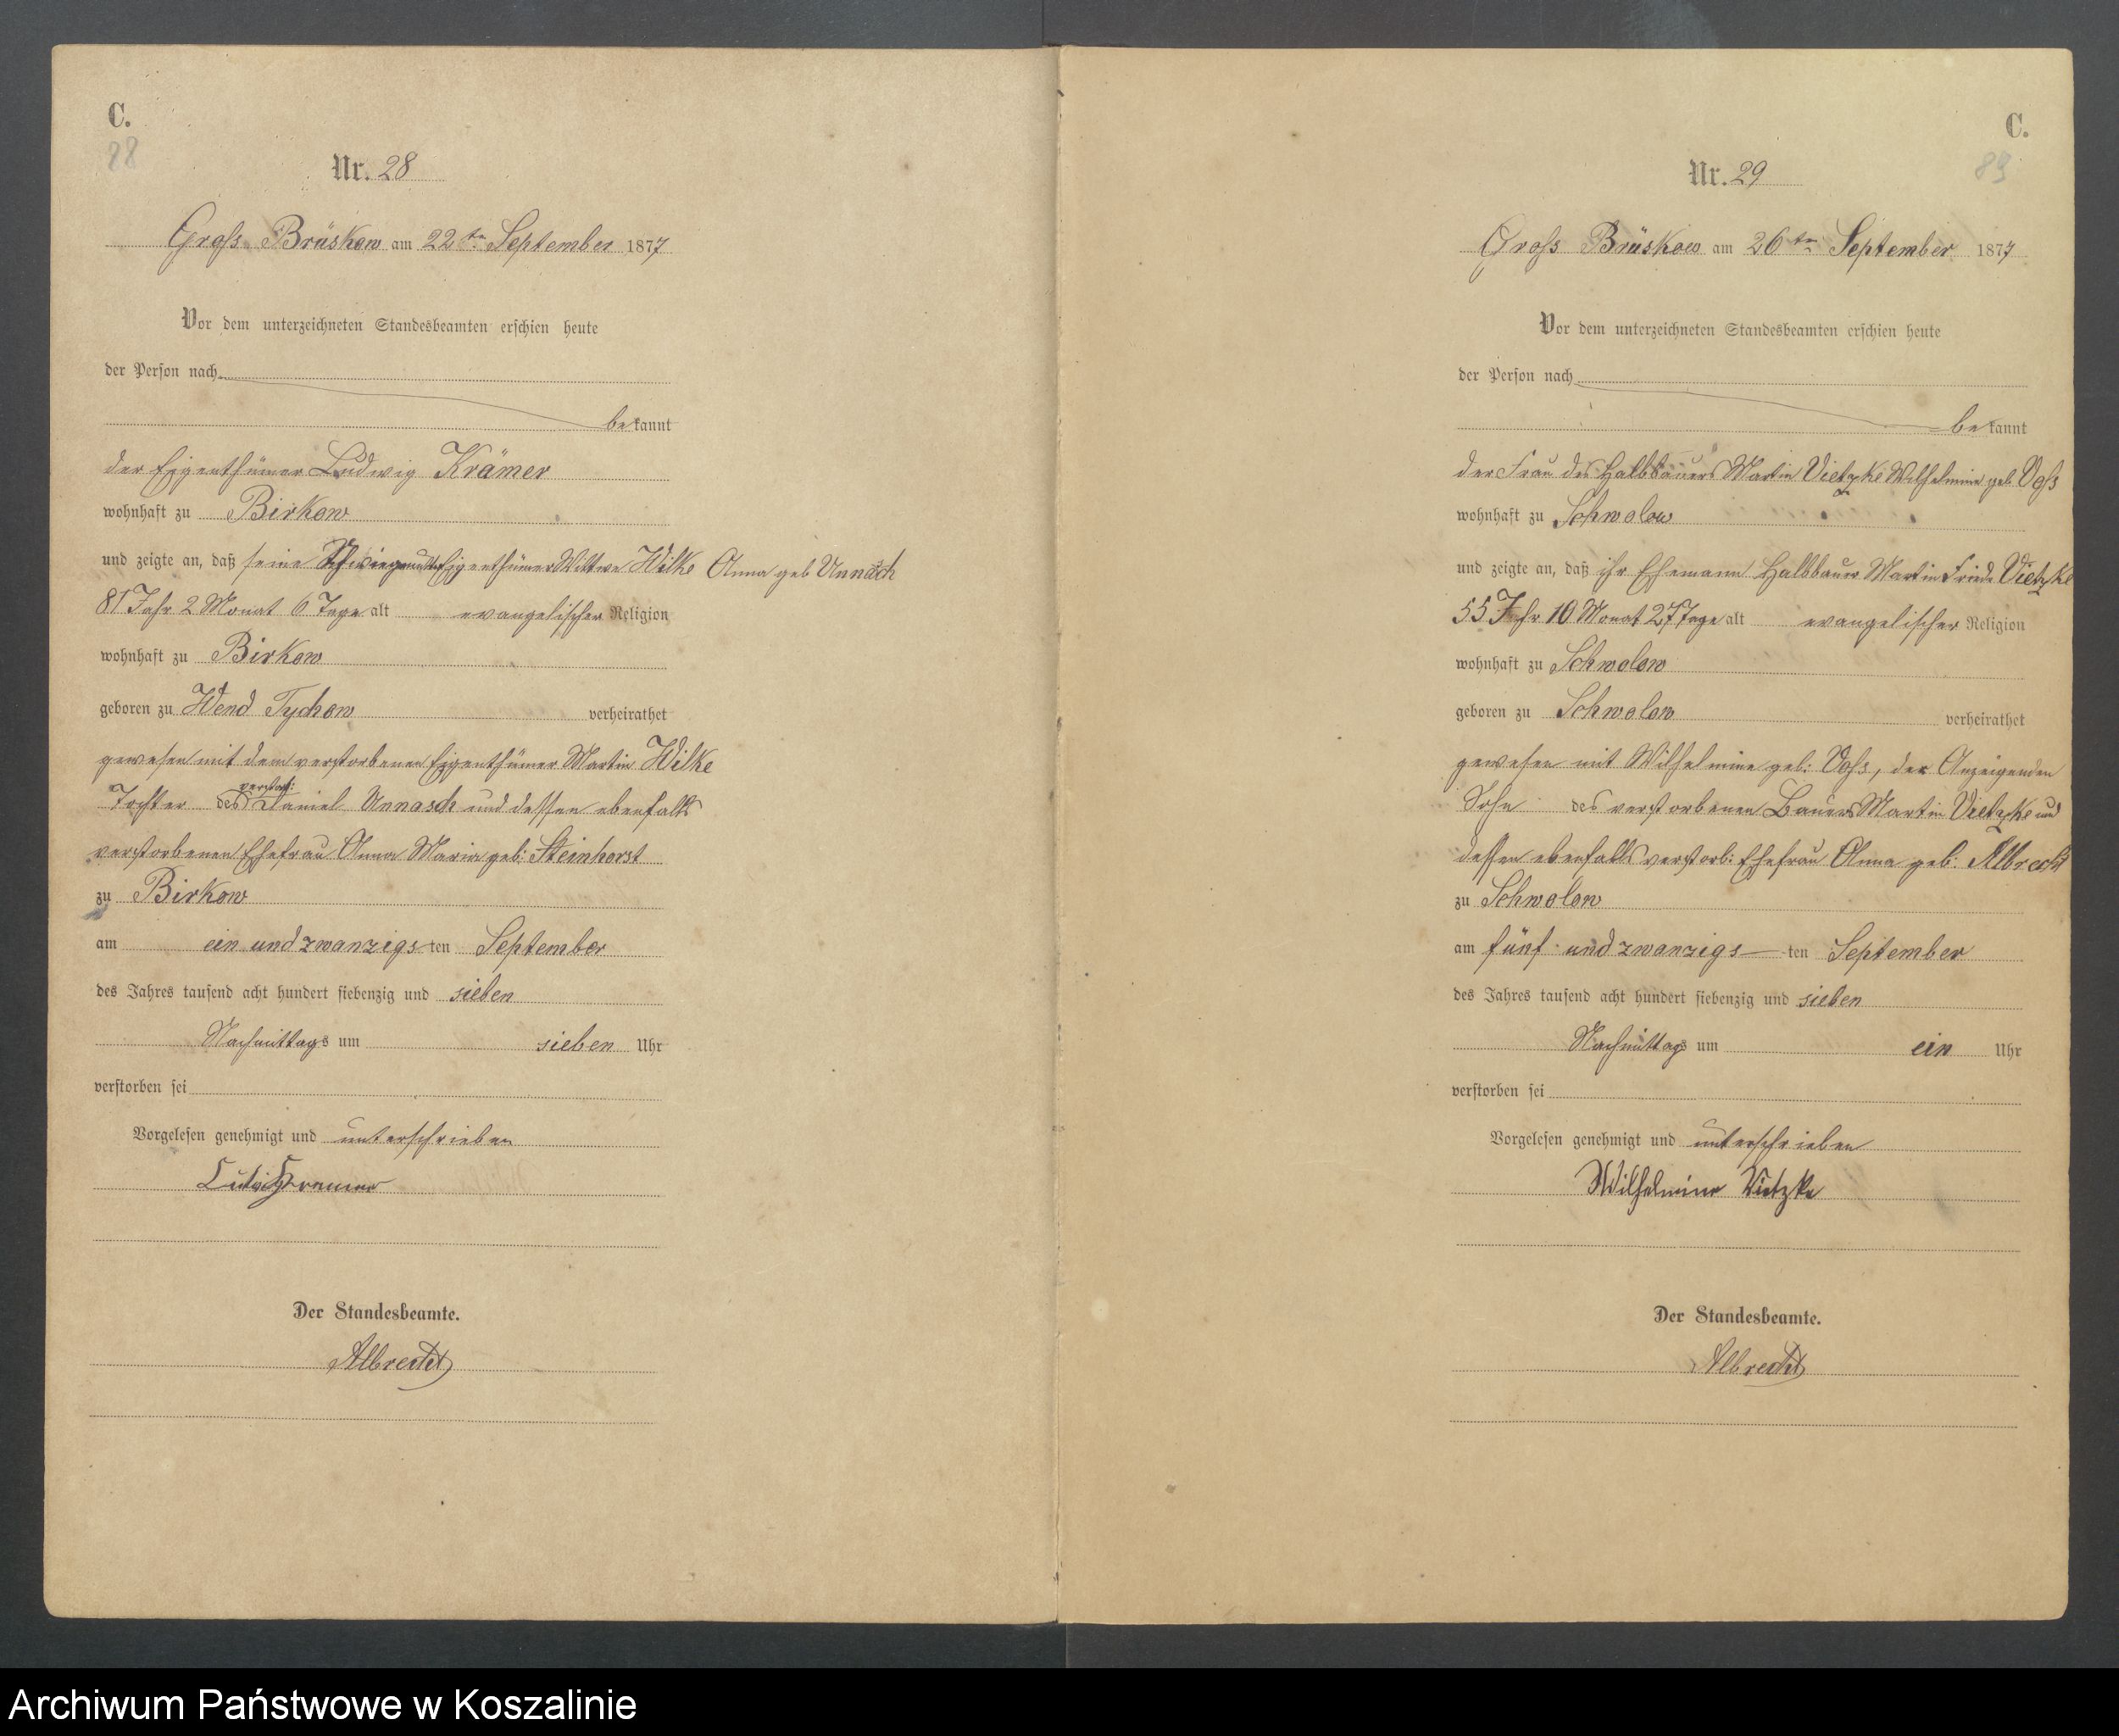 C.
28
Nr. 28
Gross Brüskow am 22ten September 1877
Vor dem unterzeichneten Standesbeamten erschien heute
der Person nach
bekannt
der Eigenthümer Ludwig Krämer
wohnhaft zu Birkow
und zeigte an, daß seine Eigenthümer Wittwe Wilke Anna geb Unnasch
81 Jahr 2 Monat 6 Tage alt evangelischer Religion
wohnhaft zu Birkow
geboren zu Wend Tychow verheirathet
gewesen mit dem verstorbenen Eigenthümer Martin Wilke
verstorb:
Tochter des Daniel Unnasch und dessen ebenfalls
verstorbenen Ehefrau Anna Maria geb: Steinhorst
zu Birkow
am ein und zwanzigsten September
des Jahres tausend acht hundert siebenzig und sieben
Nachmittags um sieben Uhr
verstorben sei
Vorgelesen genehmigt und unterschrieben
Der Standesbeamte.
Albrecht
C.
89
Nr. 29
Gross Brüskow am 26ten September 1877
Vor dem unterzeichneten Standesbeamten erschien heute
der Person nach
bekannt
der Frau des Halbbauers Martin Vietzke Wilhelmine geb Voss
wohnhaft zu Schwolow
und zeigte an, daß ihr Ehemann Halbbauer Martin Friedr Vietzke
55 Jahr 10 Monat 27 Tage alt evangelischer Religion
wohnhaft zu Schwolow
geboren zu Schwolow verheirathet
gewesen mit Wilhelmine geb: Voss, der Anzeigenden
Sohn des verstorbenen Bauers Martin Vietzke und
dessen ebenfalls verstorb: Ehefrau Anna geb: Albrecht
zu Schwolow
am fünf und zwanzigsten September
des Jahres tausend acht hundert siebenzig und sieben
Nachmittags um ein Uhr
verstorben sei
Vorgelesen genehmigt und unterschrieben
Wilhelmine Vietzke
Der Standesbeamte.
Albrecht
Archiwum Państwowe w Koszalinie